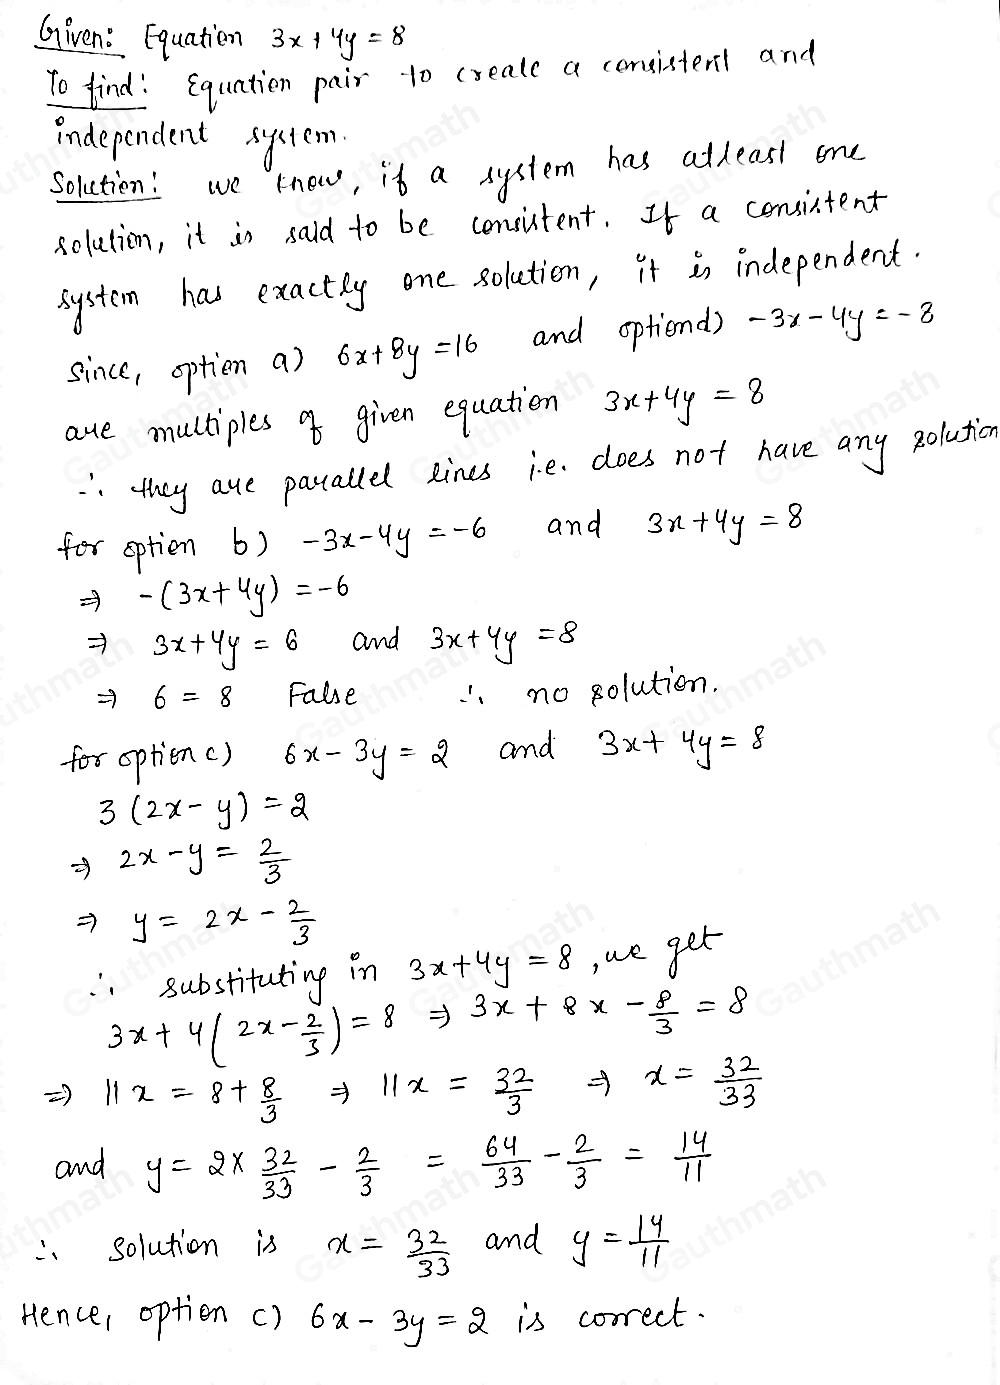 Given: Equation 3x+4y=8
To find: Equation pair to create a consistent and
independent system.
Solution: we know, if a system has atleast one
solution, it is said to be consistent. If a consistent
system has exactly one solution, it is independent.
Since, option a) 6x+8y=16 and option d) -3x-4y=-8
are multiples of given equation 3x+4y=8
∴ they are parallel lines i.e. does not have any solution
for option b) -3x-4y=-6 and 3x+4y=8
⇒ -(3x+4y)=-6
⇒ 3x+4y=6 and 3x+4y=8
⇒ 6=8 False ∴ no solution.
for option c) 6x-3y=2 and 3x+4y=8
3(2x-y)=2
⇒ 2x-y=2/3
⇒ y=2x-2/3
∴ substituting in 3x+4y=8, we get
3x+4(2x-2/3)=8 ⇒ 3x+8x-8/3=8
⇒ 11x=8+8/3 ⇒ 11x=32/3 ⇒ x=32/33
and y=2×32/33-2/3 = 64/33-2/3 = 14/11
∴ solution is x=32/33 and y=14/11
Hence, option c) 6x-3y=2 is correct.